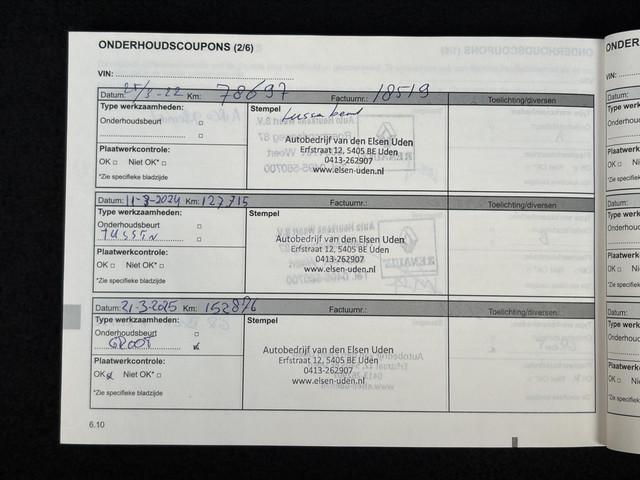 ONDERHOUDSCOUPONS (2/6)
VIN:
Datum: 25/3-22 Km: 78697 Factuurnr.: 18519 Toelichting/diversen
Type werkzaamheden: Stempel
Onderhoudsbeurt
Autobedrijf van den Elsen Uden
Erfstraat 12, 5405 BE Uden
0413-262907
www.elsen-uden.nl
Plaatwerkcontrole:
OK □ Niet OK* □
*Zie specifieke bladzijde
Datum: 11-3-2024 Km: 127715 Factuurnr.: Toelichting/diversen
Type werkzaamheden: Stempel
Onderhoudsbeurt □
TUSSEN □
Autobedrijf van den Elsen Uden
Erfstraat 12, 5405 BE Uden
0413-262907
www.elsen-uden.nl
Plaatwerkcontrole:
OK □ Niet OK* □
*Zie specifieke bladzijde
Datum: 21-3-2025 Km: 152876 Factuurnr.: Toelichting/diversen
Type werkzaamheden: Stempel
Onderhoudsbeurt □
GROOT
Autobedrijf van den Elsen Uden
Erfstraat 12, 5405 BE Uden
0413-262907
www.elsen-uden.nl
Plaatwerkcontrole:
OK Niet OK* □
*Zie specifieke bladzijde
6.10